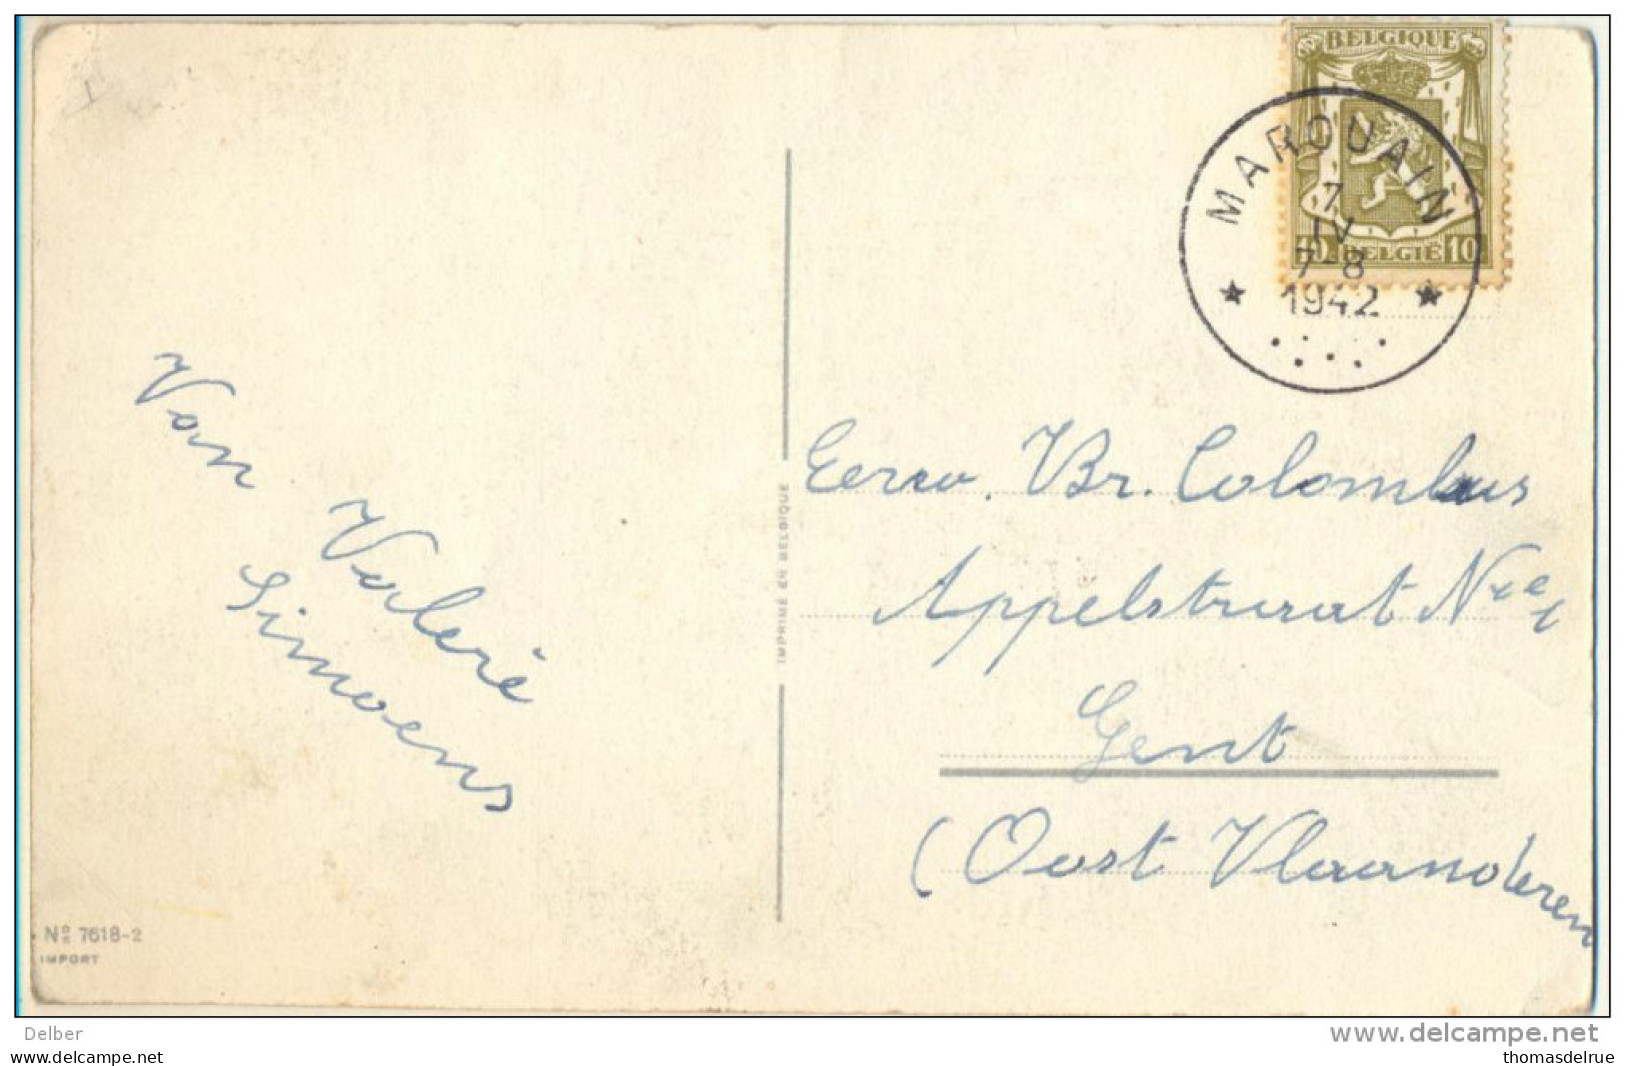 BELGIQUE
MAROUAIN
7
IV
7-8
1942
10 BELGIË 10
Van Valerè
Simoens
IMPRIMÉ EN BELGIQUE
Eerw. Br. Colombus
Appelstraat
Gent
(Oost Vlaanderen
No 7618-2
IMPORT
Delber
delcampe.net
www.delcampe.net
thomasdelrue